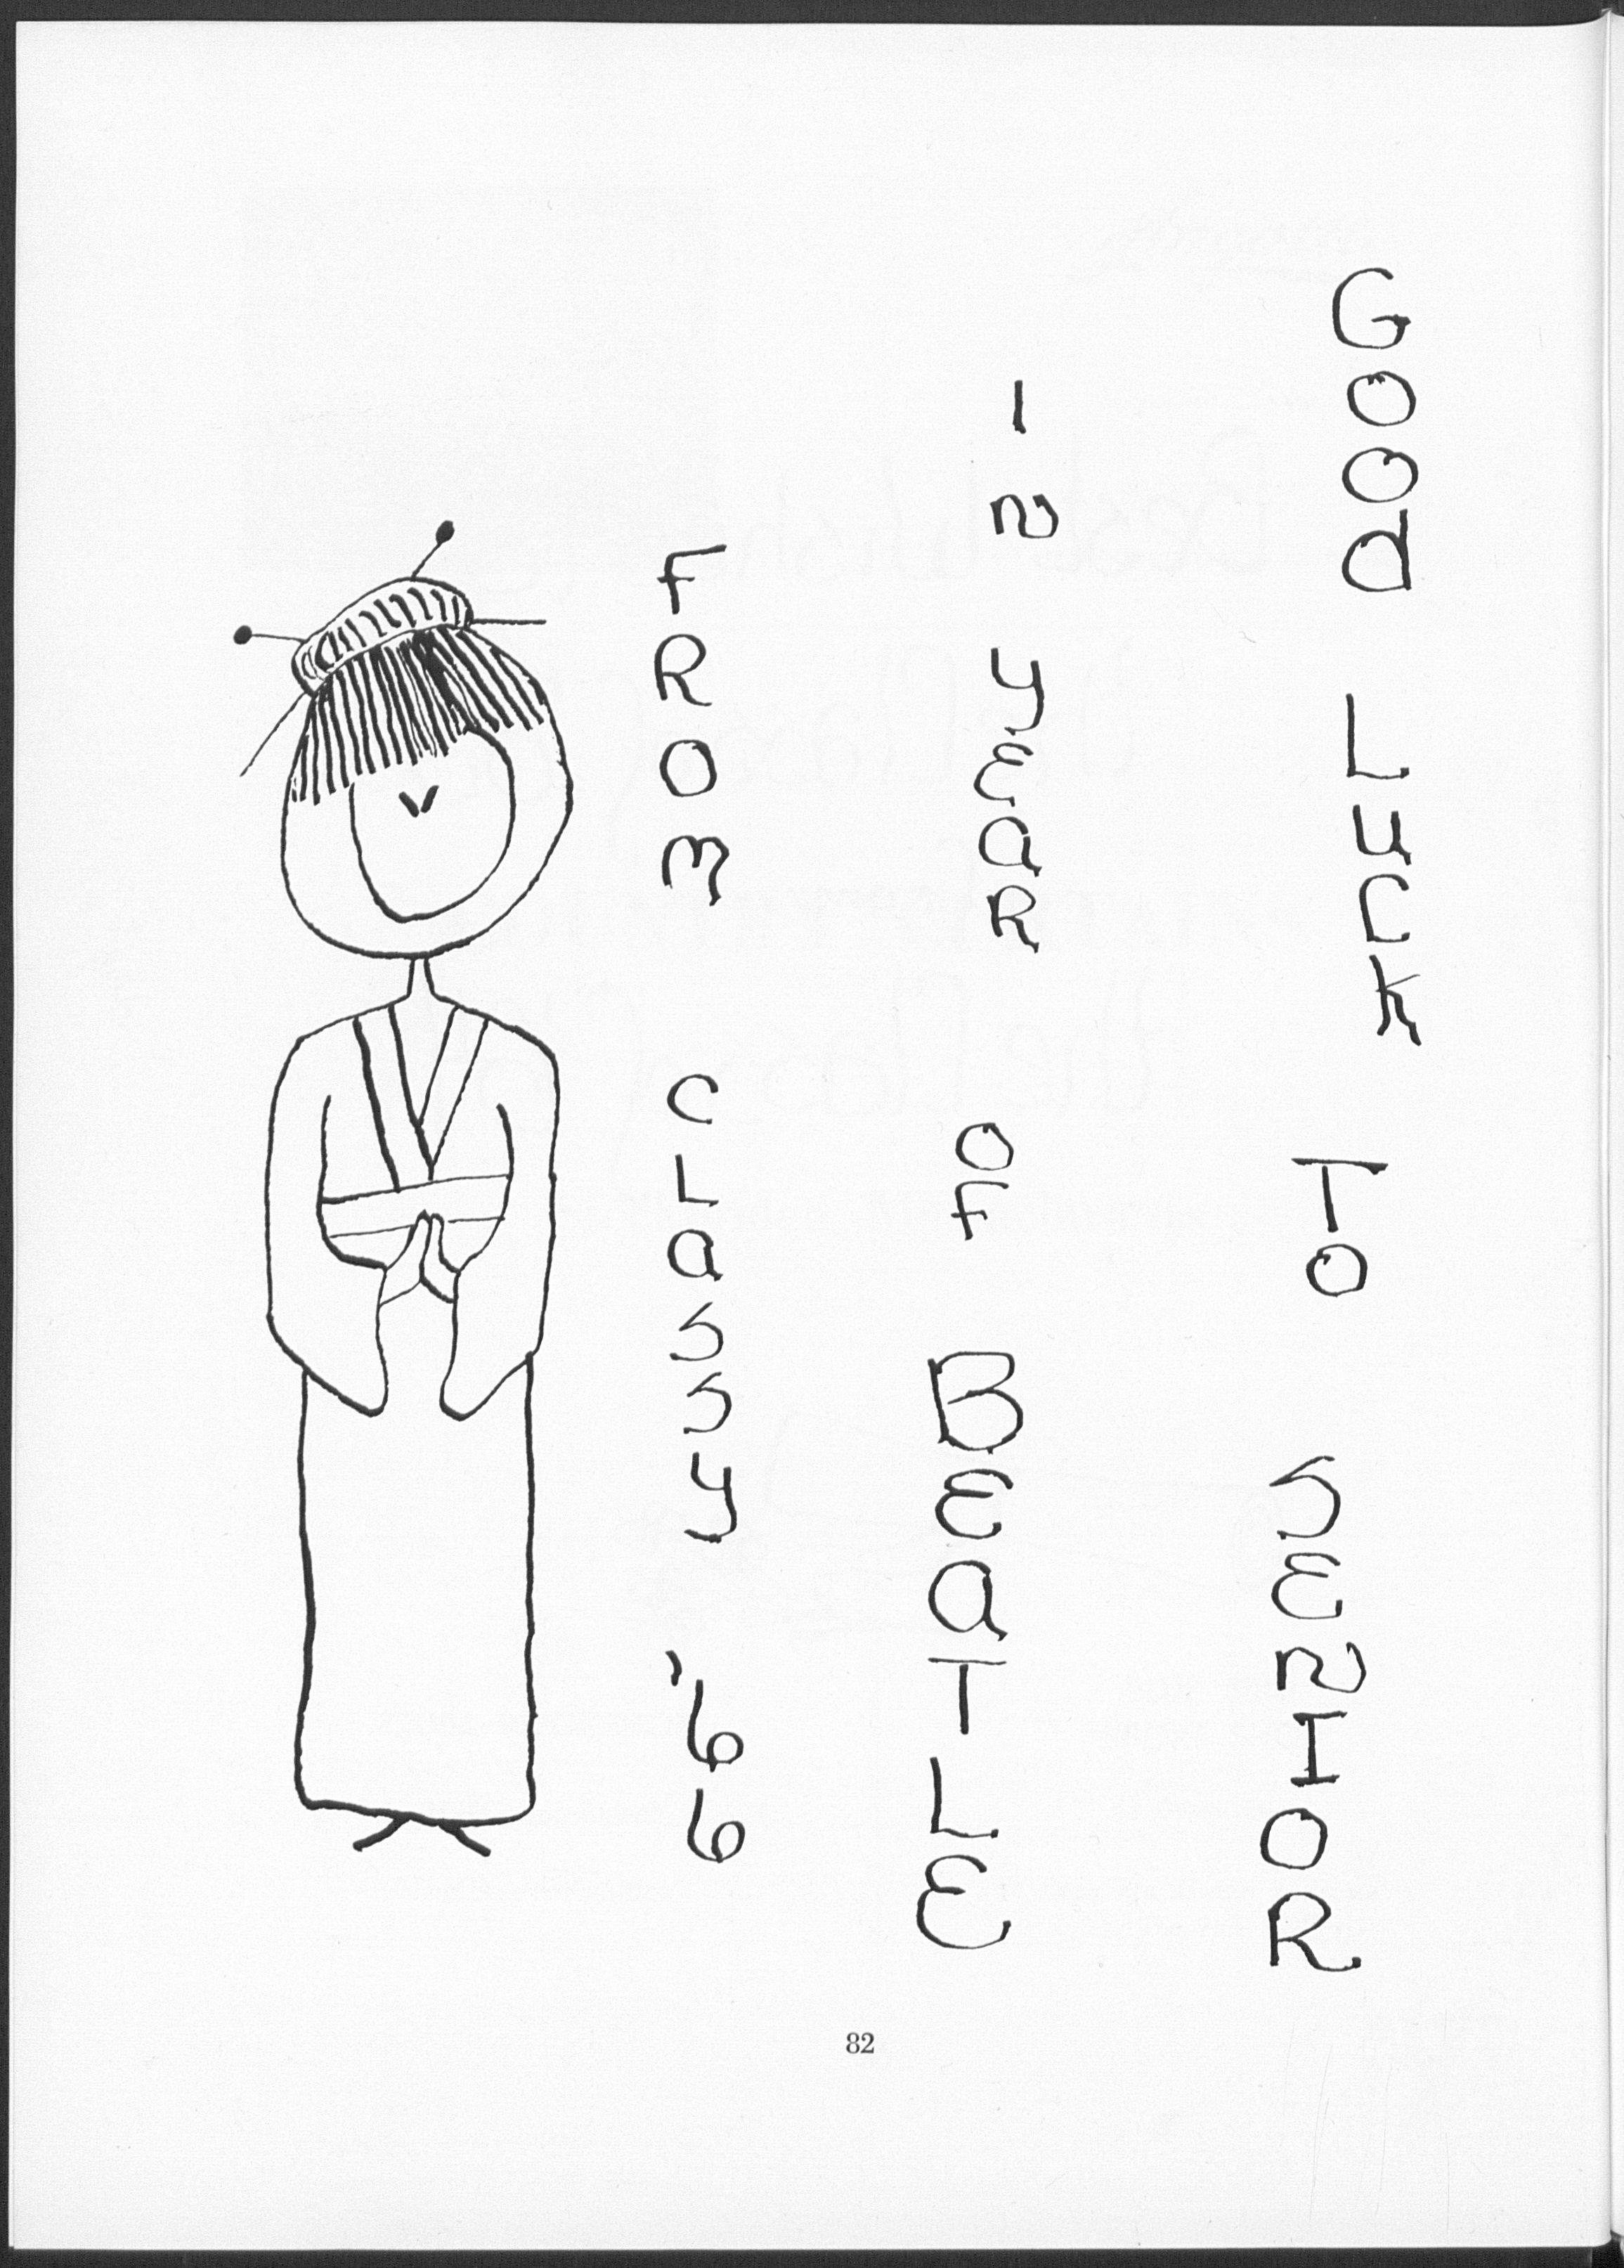 GOOD LUCK TO SENIOR
IN YEAR OF BEATLE
FROM CLASSY '66
82